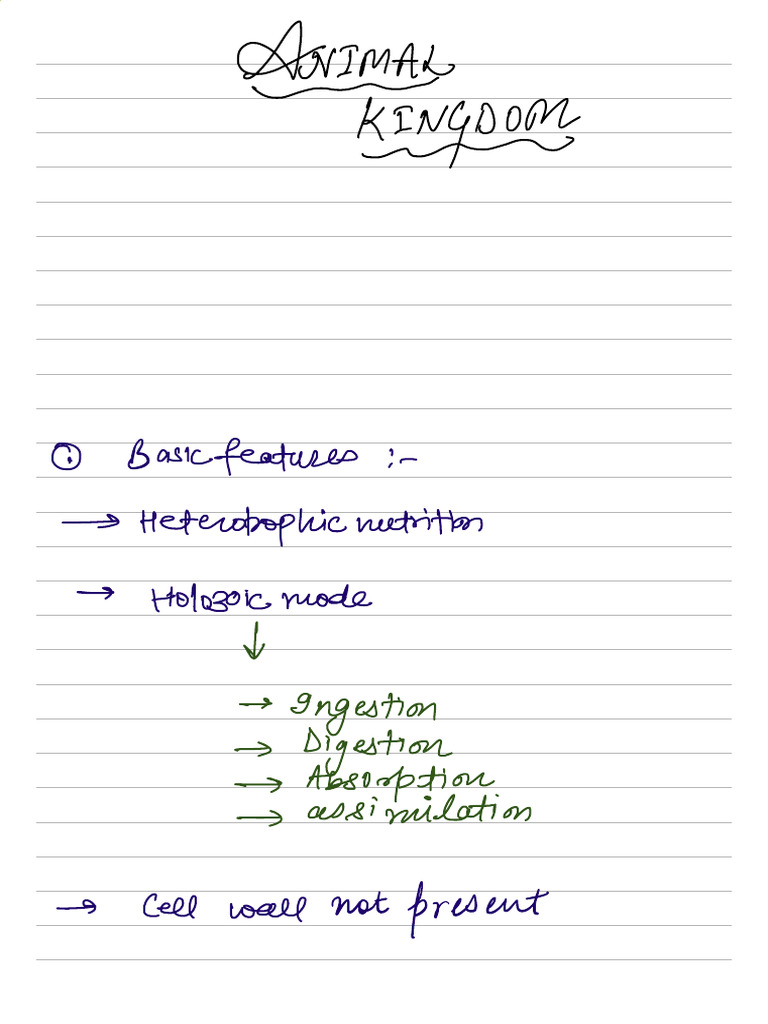 ANIMAL
KINGDOM
① Basic features :-
→ Heterotrophic nutrition
→ Holozoic mode
↓
→ Ingestion
→ Digestion
→ Absorption
→ assimilation
→ Cell wall not present